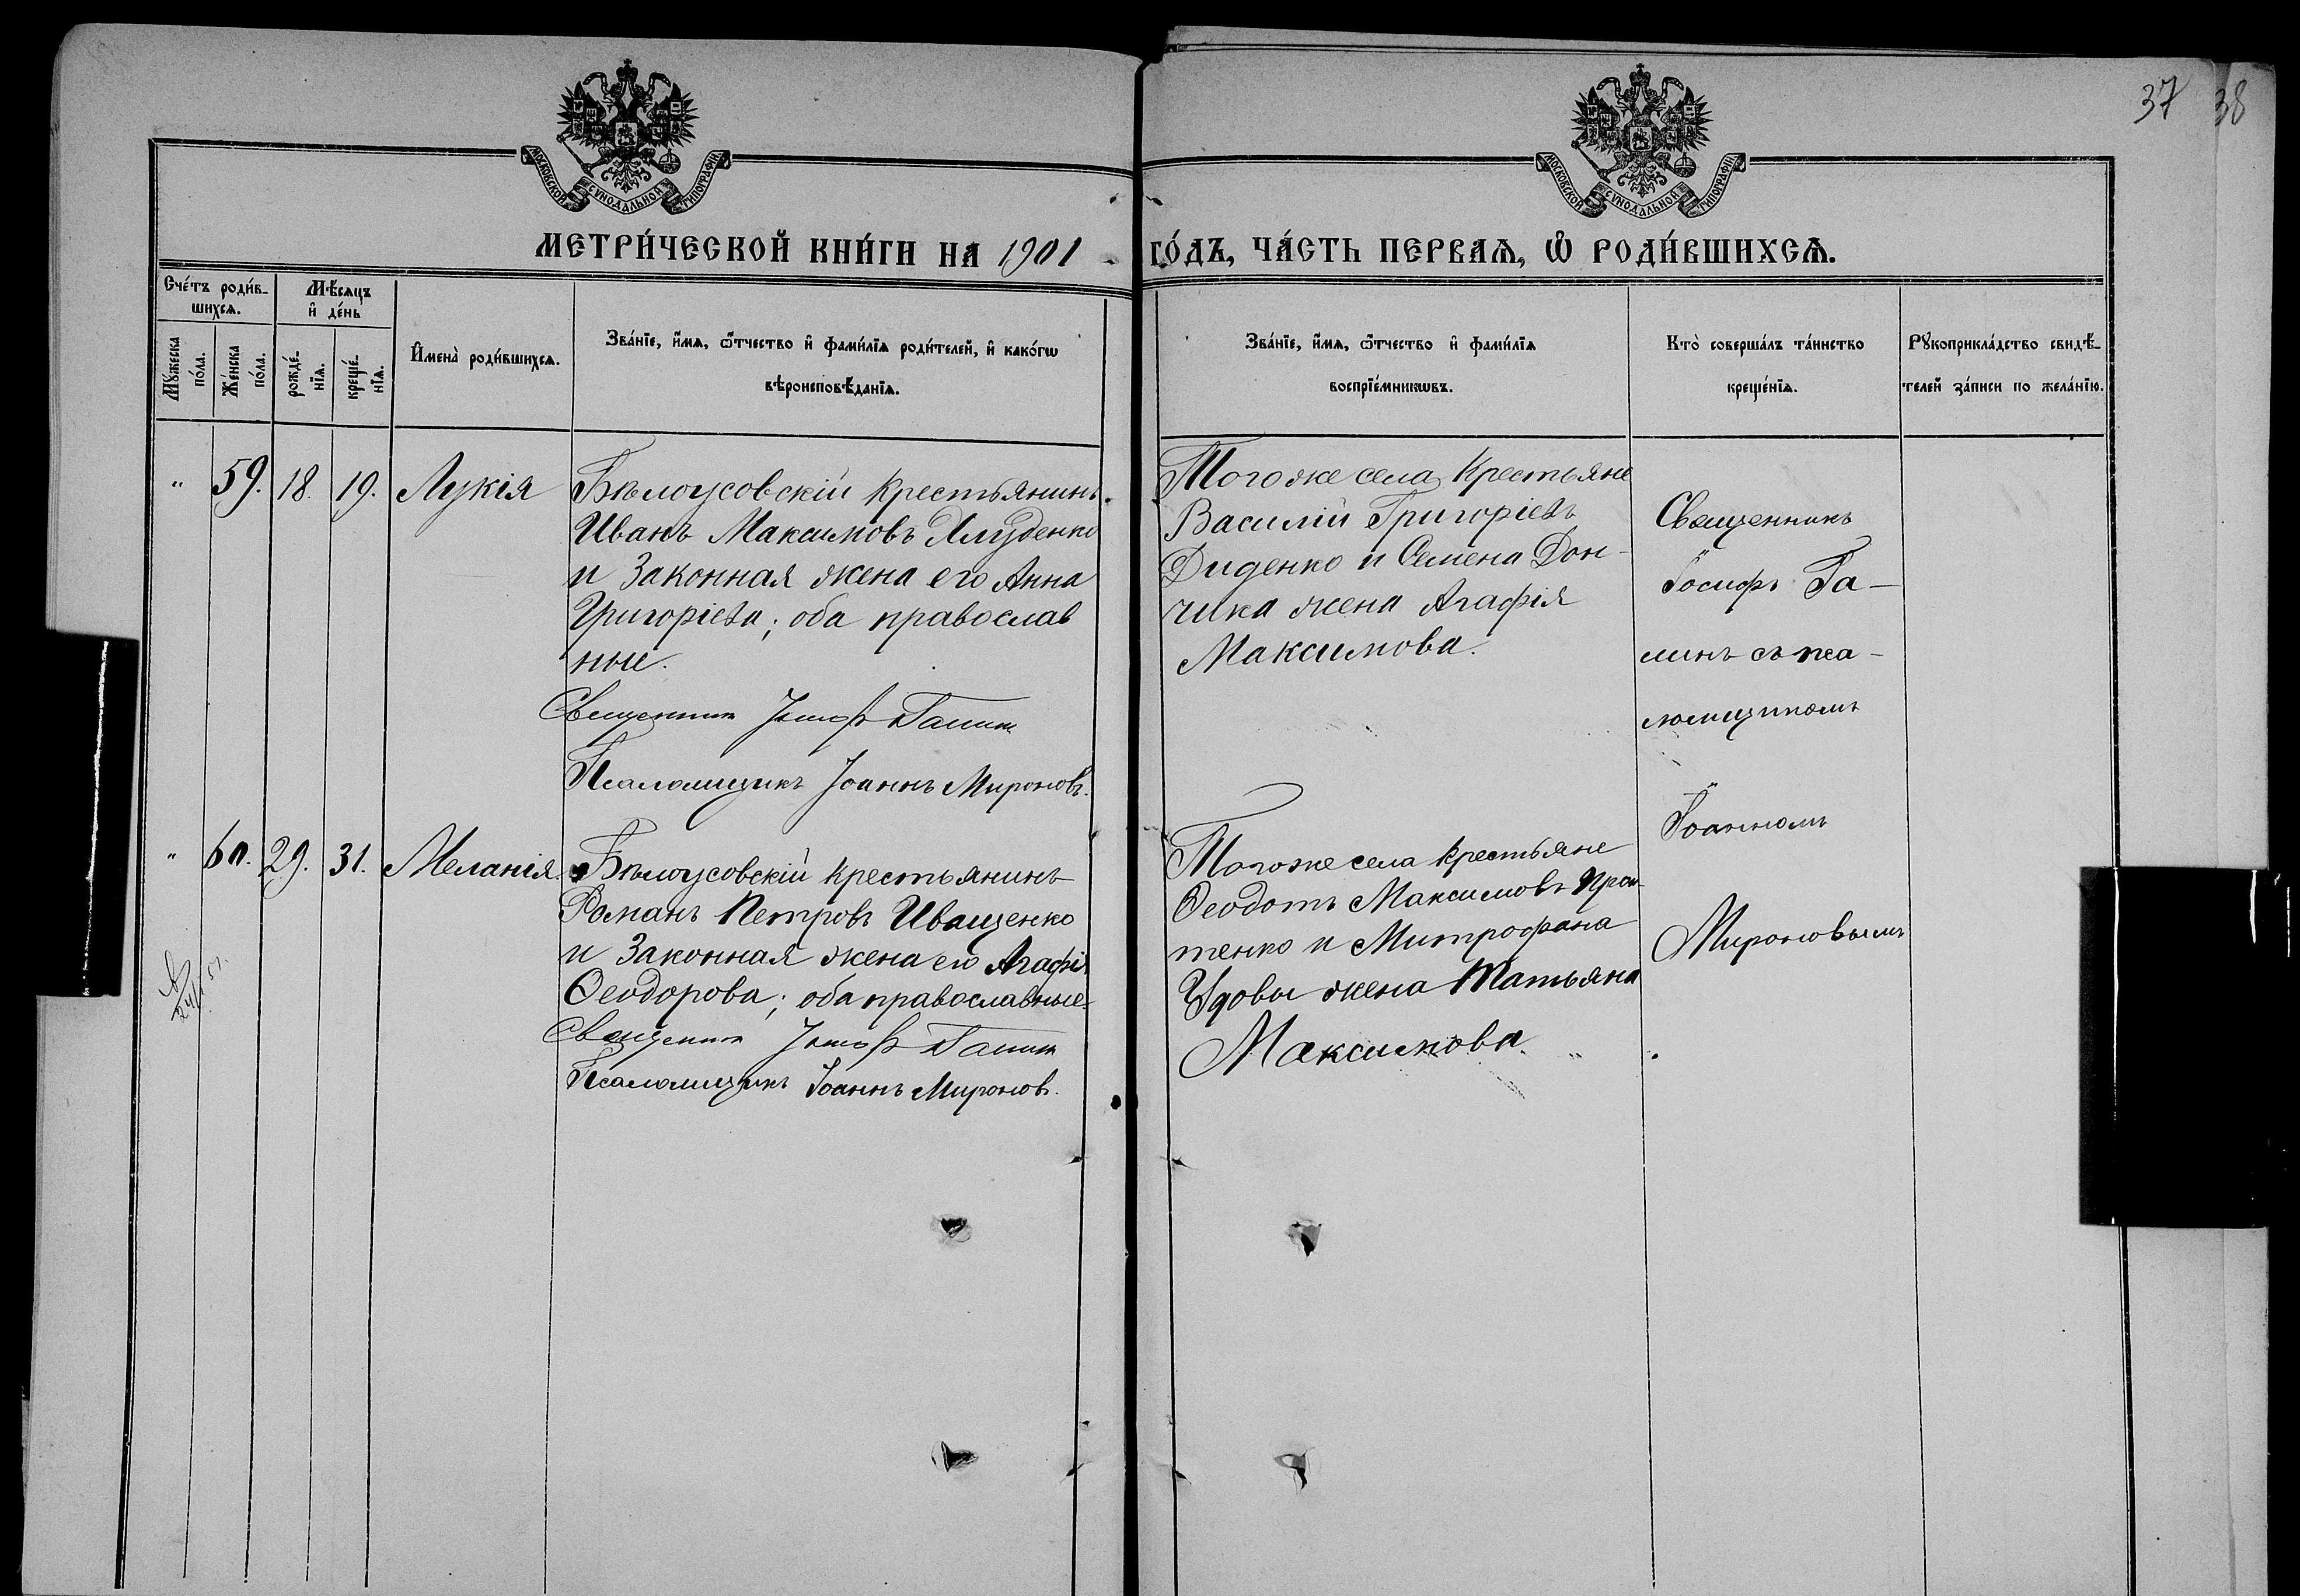 37 38
МОСКОВСКОЙ СѴНОДАЛЬНОЙ ТИПОГРАФІИ.
МОСКОВСКОЙ СѴНОДАЛЬНОЙ ТИПОГРАФІИ.
МЕТРИ́ЧЕСКОЙ КНИ́ГИ НА 1901 ГО́ДЪ, ЧА́СТЬ ПЕРВАѦ, Ѡ҆ РОДИ́ВШИХСѦ.
Сче́тъ роди́в-
шихсѧ.
Мꙋ́жеска
по́ла.
Же́нска
по́ла.
Мѣ́сѧцъ
и҆ де́нь
рожде́-
нїѧ.
креще́-
нїѧ.
И҆мена̀ роди́вшихсѧ.
Зва́нїе, и҆́мѧ, ѻ҆́тчество и҆ фами́лїѧ роди́телей, и҆ како́гѡ
вѣроисповѣ́данїѧ.
Зва́нїе, и҆́мѧ, ѻ҆́тчество и҆ фами́лїѧ
воспрїе́мникѡвъ.
Кто̀ соверша́лъ та́инство
креще́нїѧ.
Рꙋкоприкла́дство свидѣ́-
телей за́писи по жела́нїю.
„ 59. 18. 19. Лукія
Бѣлоусовскій крестьянинъ
Иванъ Максимовъ Хлуденко
и законная жена его Анна
Григорieва; оба православ
ные.
Священникъ Іосифъ Галинъ
Псаломщикъ Іоаннъ Мироновъ.
Тогоже села крестьяне
Василій Григоріевъ
Диденко и Семена Дон-
чика жена Агафія
Максимова.
Священникъ
Іосифъ Га-
линъ съ пса-
ломщикомъ
Іоанномъ
Мироновымъ
„ 60. 29. 31. Меланія.
Бѣлоусовскій крестьянинъ
Романъ Петровъ Иващенко
и законная жена его Агафія
Ѳеодорова; оба православные.
Священникъ Іосифъ Галинъ
Псаломщикъ Іоаннъ Мироновъ.
Тогоже села крестьяне
Ѳеодотъ Максимовъ
и Митрофана
жена Татьяна
Максимова.